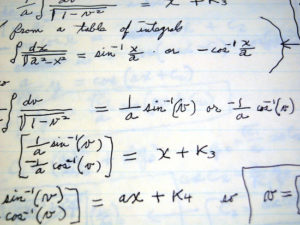 1/a ∫ dv/√(1-v²) = x + K₃
from a table of integrals
∫ dx/√(a²-x²) = sin⁻¹ x/a or -cos⁻¹ x/a
∫ dv/√(1-v²) = 1/a sin⁻¹(v) or -1/a cos⁻¹(v)
[1/a sin⁻¹(v)
-1/a cos⁻¹(v)] = x + K₃
sin⁻¹(v)
cos⁻¹(v)] = ax + K₄ so v = [